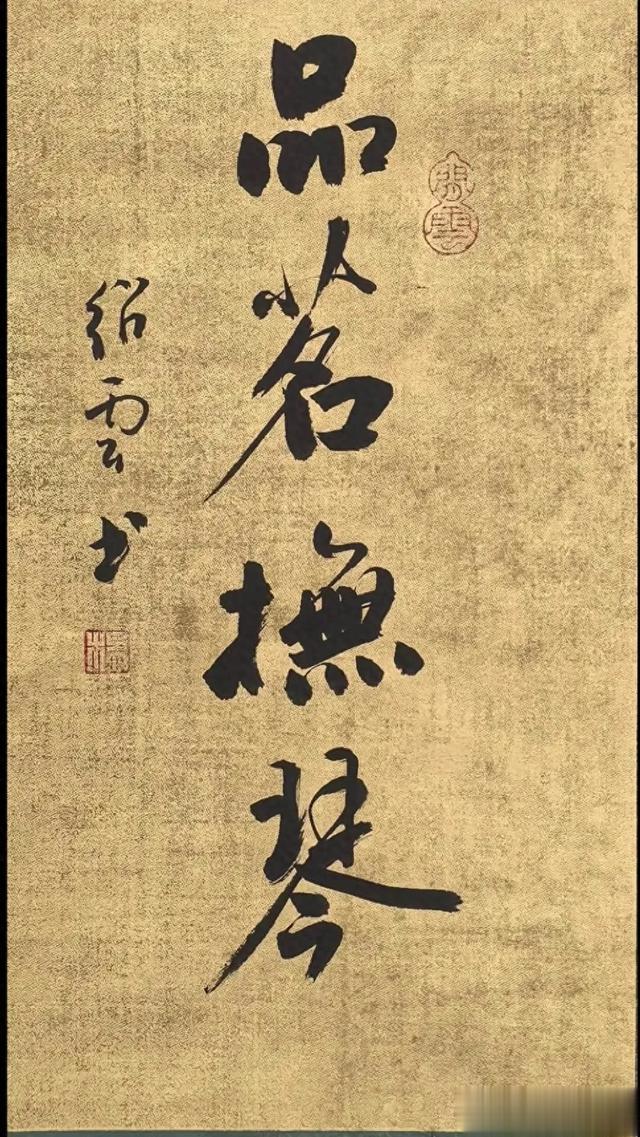 品茗撫琴
紹雲书